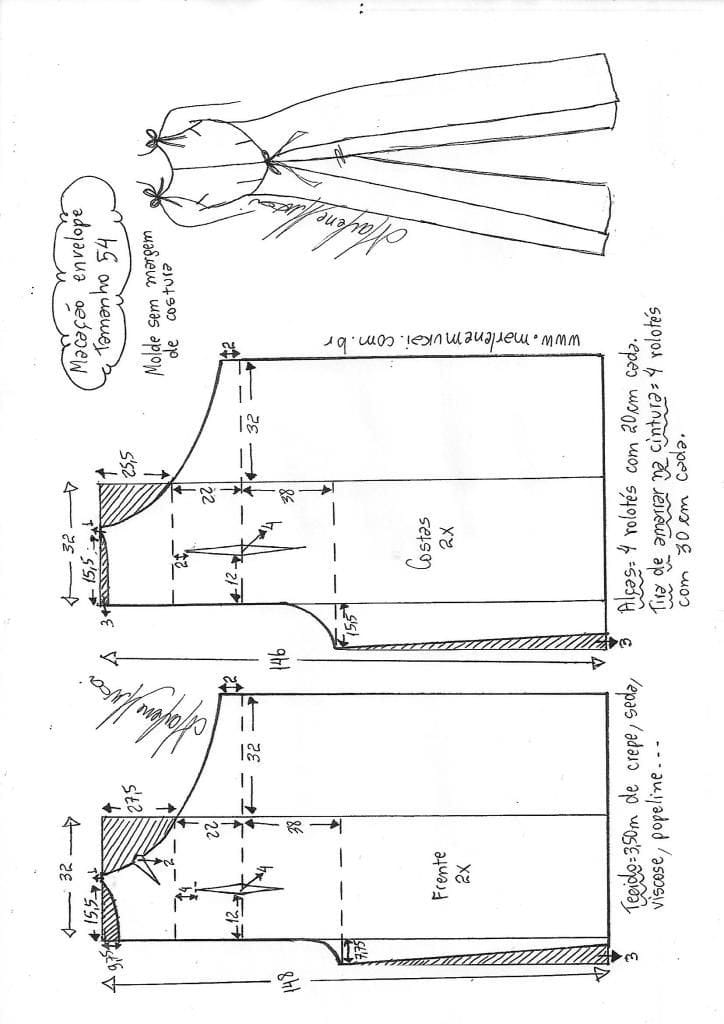 Macacão envelope
Tamanho 54
Molde sem margem
de costura
Marlene Mukai
www.marlenemukai.com.br
2
25,5
32
32
1
15,5
22
38
4
2
12
3
Costas
2X
15,5
146
3
Alças= 4 rolotés com 20cm cada.
Tira de amarrar na cintura= 4 rolotés
com 30 cm cada.
Marlene Mukai
2
27,5
32
32
1
2
15,5
22
38
4
4
12
9,75
Frente
2X
7,75
148
3
Tecido=3,50m de crepe, seda,
viscose, popeline...